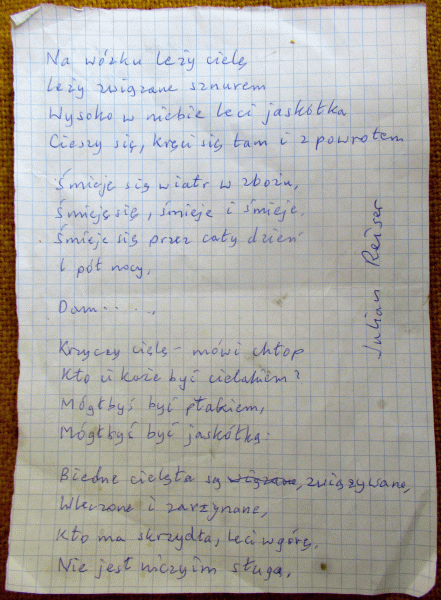 Na wózku leży cielę
Leży związane sznurem
Wysoko w niebie leci jaskółka
Cieszy się, kręci się tam i z powrotem
Śmieje się wiatr w zbożu,
Śmieje się, śmieje i śmieje.
Śmieje się przez cały dzień
I pół nocy.
Dam.....
Krzyczy cielę – mówi chłop
Kto ci każe być cielakiem?
Mógłbyś być ptakiem,
Mógłbyś być jaskółką:
Biedne cielęta są wiązane, związywane,
Wleczone i zarzynane,
Kto ma skrzydła, leci w górę,
Nie jest niczyim sługą.
Julian Reiser